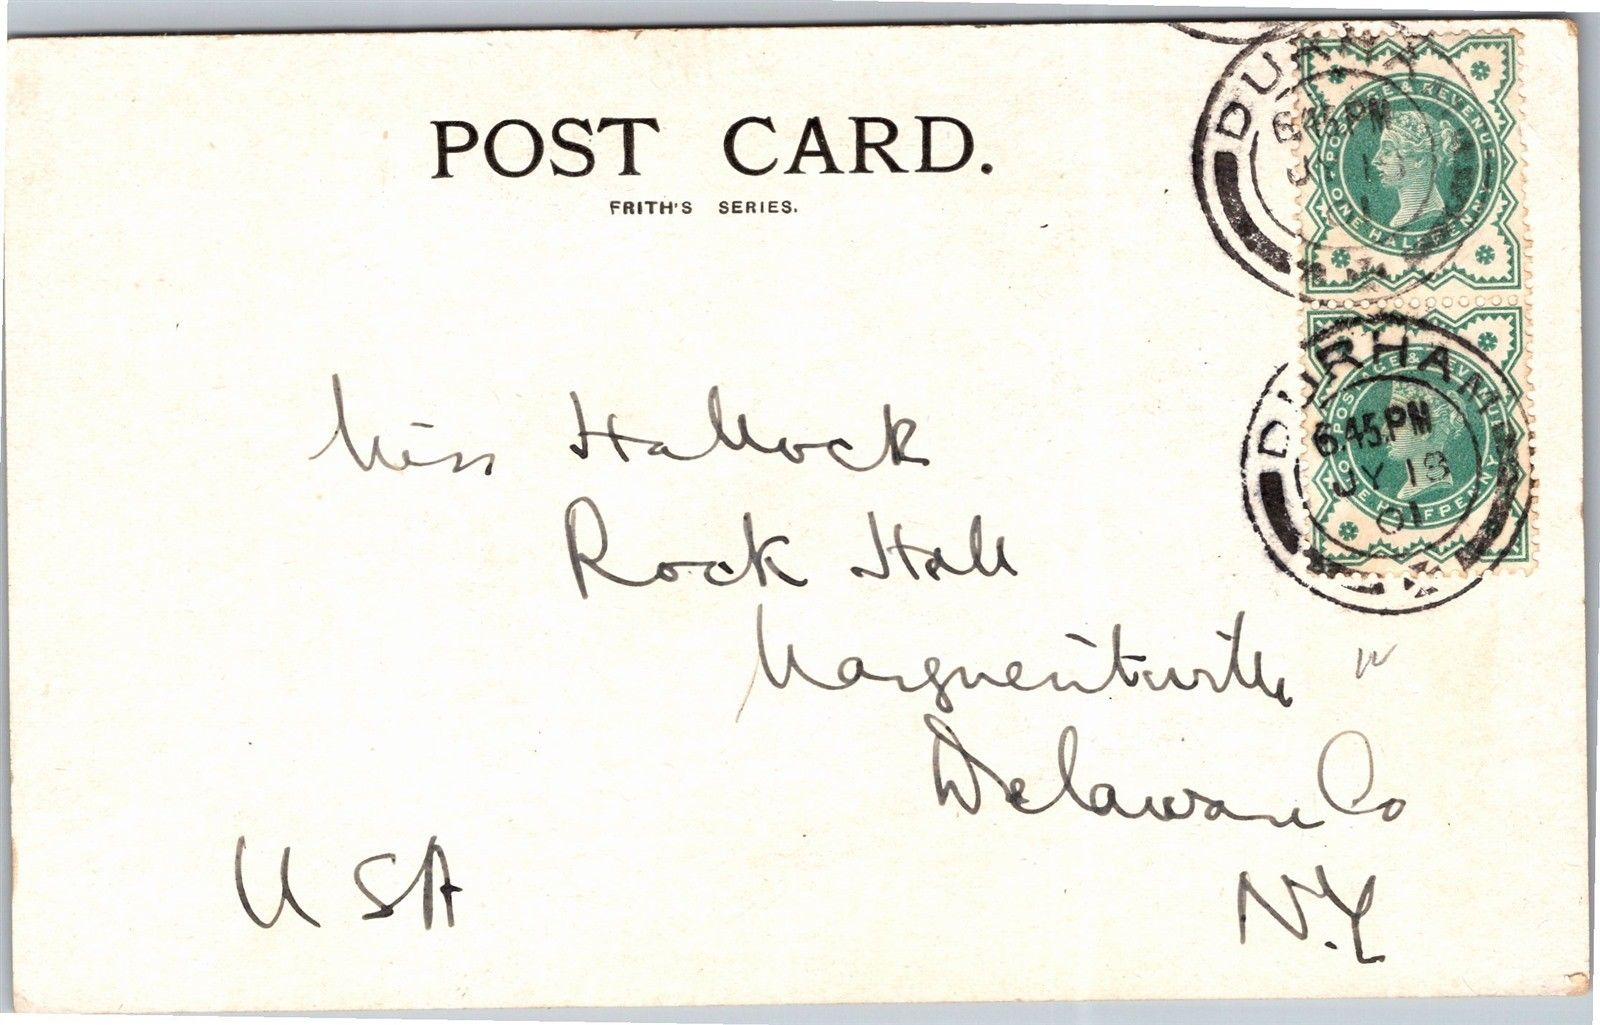 POST CARD.
FRITH'S SERIES.
POSTAGE & REVENUE
ONE HALFPENNY
6.45PM
POSTAGE & REVENUE
ONE HALFPENNY
DURHAM
6.45.PM
JY 18
01
Miss Hallock
Rock Hall
Delaware Co
N.Y
USA